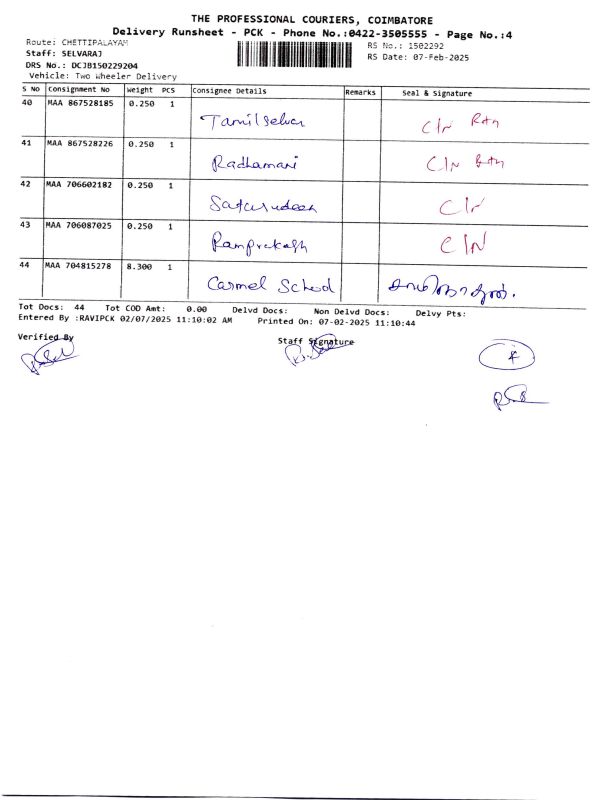 THE PROFESSIONAL COURIERS, COIMBATORE
Delivery Runsheet - PCK - Phone No.:0422-3505555 - Page No.:4
Route: CHETTIPALAYAM
RS No.: 1502292
Staff: SELVARAJ
RS Date: 07-Feb-2025
DRS No.: DCJB150229204
Vehicle: Two Wheeler Delivery
S No Consignment No Weight PCS Consignee Details Remarks Seal & Signature
40 MAA 867528185 0.250 1
Tamilselvan C/N
41 MAA 867528226 0.250 1
Radhamani C/N
42 MAA 706602182 0.250 1
C/N
43 MAA 706087025 0.250 1
Ramprakash C/N
44 MAA 704815278 8.300 1
Carmel School
Tot Docs: 44 Tot COD Amt: 0.00 Delvd Docs: Non Delvd Docs: Delvy Pts:
Entered By :RAVIPCK 02/07/2025 11:10:02 AM Printed On: 07-02-2025 11:10:44
Verified By Staff Signature